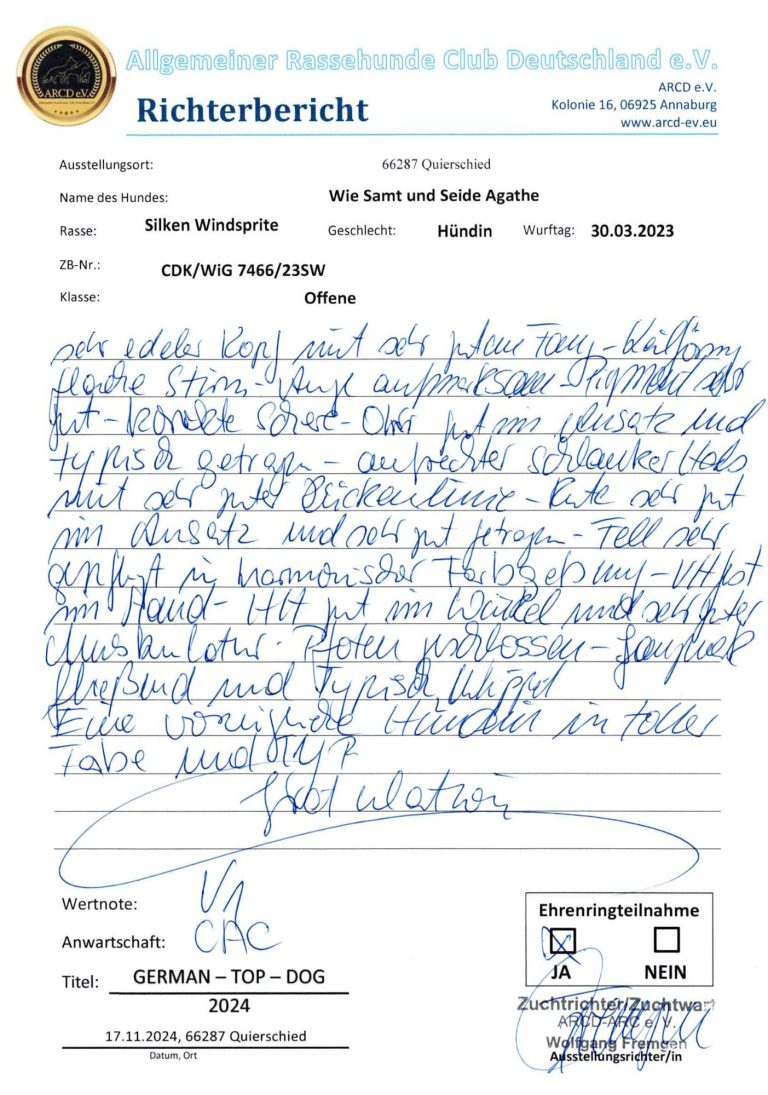 ARCD e.V.
Allgemeiner Rassehunde Club Deutschland e.V.
Richterbericht
ARCD e.V.
Kolonie 16, 06925 Annaburg
www.arcd-ev.eu
Ausstellungsort: 66287 Quierschied
Name des Hundes: Wie Samt und Seide Agathe
Rasse: Silken Windsprite Geschlecht: Hündin Wurftag: 30.03.2023
ZB-Nr.: CDK/WiG 7466/23SW
Klasse: Offene
sehr edeler Kopf mit sehr gutem Fang - Keilförmig
flache Stirn - Auge aufmerksam - Pigment sehr
gut - korrekte Schere - Ohr gut im Ansatz und
typisch getragen - aufrechter schlanker Hals
mit sehr guter Rückenlinie - Rute sehr gut
im Ansatz und sehr gut getragen - Fell sehr
gepflegt in harmonischer Farbgebung - VH fest
im Stand - HH gut im Winkel und sehr guter
Muskulatur - Pfoten geschlossen - Gangwerk
fließend und Typisch
Eine vorzügliche Hündin in toller
Farbe und TYP
Gratulation
Wertnote: V1
Anwartschaft: CAC
Titel: GERMAN – TOP – DOG
2024
17.11.2024, 66287 Quierschied
Datum, Ort
Ehrenringteilnahme
JA NEIN
Zuchtrichter/Zuchtwart
ARCD-ARC e. V.
Wolfgang Fremgen
Ausstellungsrichter/in